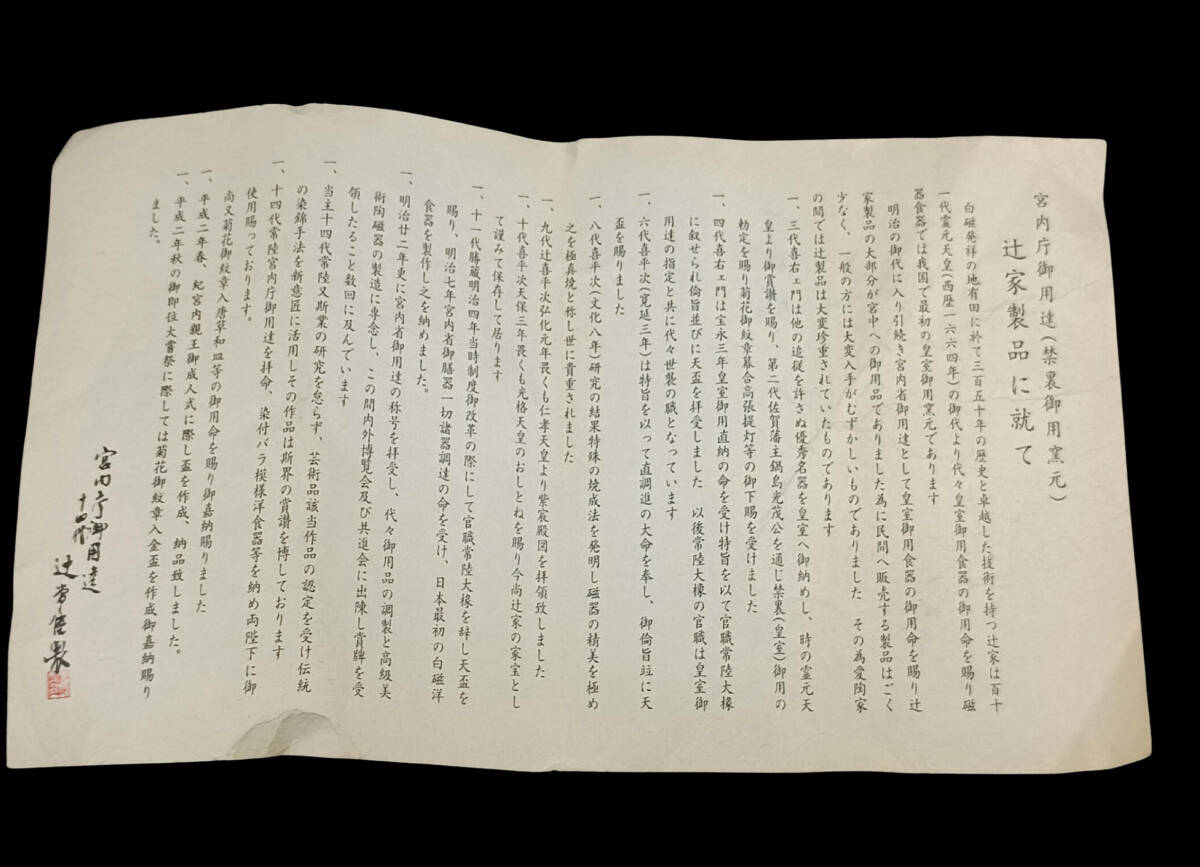 宮内庁御用達(禁裏御用窯元)
辻家製品に就て
白磁発祥の地有田に於て三百五十年の歴史と卓越した技術を持つ辻家は百十
一代霊元天皇(西歴一六六四年)の御代より代々皇室御用食器の御用命を賜り磁
器食器では我国で最初の皇室御用窯元であります
明治の御代に入り引続き宮内省御用達として皇室御用食器の御用命を賜り辻
家製品の大部分が宮中への御用品でありました為に民間へ販売する製品はごく
少なく、一般の方には大変入手がむずかしいものでありました その為愛陶家
の間では辻製品は大変珍重されていたものであります
一、三代喜右ェ門は他の追従を許さぬ優秀名器を皇室へ御納めし、時の霊元天
皇より御賞讃を賜り、第二代佐賀藩主鍋島光茂公を通じ禁裏(皇室)御用の
勅定を賜り菊花御紋章幕合高張提灯等の御下賜を受けました
一、四代喜右ェ門は宝永三年皇室御用直納の命を受け特旨を以て官職常陸大掾
に叙せられ倫旨並びに天盃を拝受しました 以後常陸大掾の官職は皇室御
用達の指定と共に代々世襲の職となっています
一、六代喜平次(寛延三年)は特旨を以って直調進の大命を奉し、御倫旨竝に天
盃を賜りました
一、八代喜平次(文化八年)研究の結果特殊の焼成法を発明し磁器の精美を極め
之を極真焼と称し世に貴重されました
一、九代辻喜平次弘化元年畏くも仁孝天皇より紫宸殿図を拝領致しました
一、十代喜平次天保三年畏くも光格天皇のおしとねを賜り今尚辻家の家宝とし
て謹みて保存して居ります
一、十一代勝蔵明治四年当時制度御改革の際にして官職常陸大掾を辞し天盃を
賜り、明治七年宮内省御膳器一切諸器調達の命を受け、日本最初の白磁洋
食器を製作し之を納めました。
一、明治廿二年更に宮内省御用達の称号を拝受し、代々御用品の調製と高級美
術陶磁器の製造に専念し、この間内外博覧会及び共進会に出陳し賞牌を受
領したること数回に及んでいます
一、当主十四代常陸又斯業の研究を怠らず、芸術品該当作品の認定を受け伝統
の染錦手法を新意匠に活用しその作品は斯界の賞讃を博しております
一、十四代常陸宮内庁御用達を拝命、染付バラ模様洋食器等を納め両陛下に御
使用賜っております。
尚又菊花御紋章入唐草和皿等の御用命を賜り御嘉納賜りました
一、平成二年春、紀宮内親王御成人式に際し盃を作成、納品致しました。
一、平成二年秋の御即位大嘗祭に際しては菊花御紋章入金盃を作成御嘉納賜り
ました。
宮内庁御用達
十四代
辻常陸